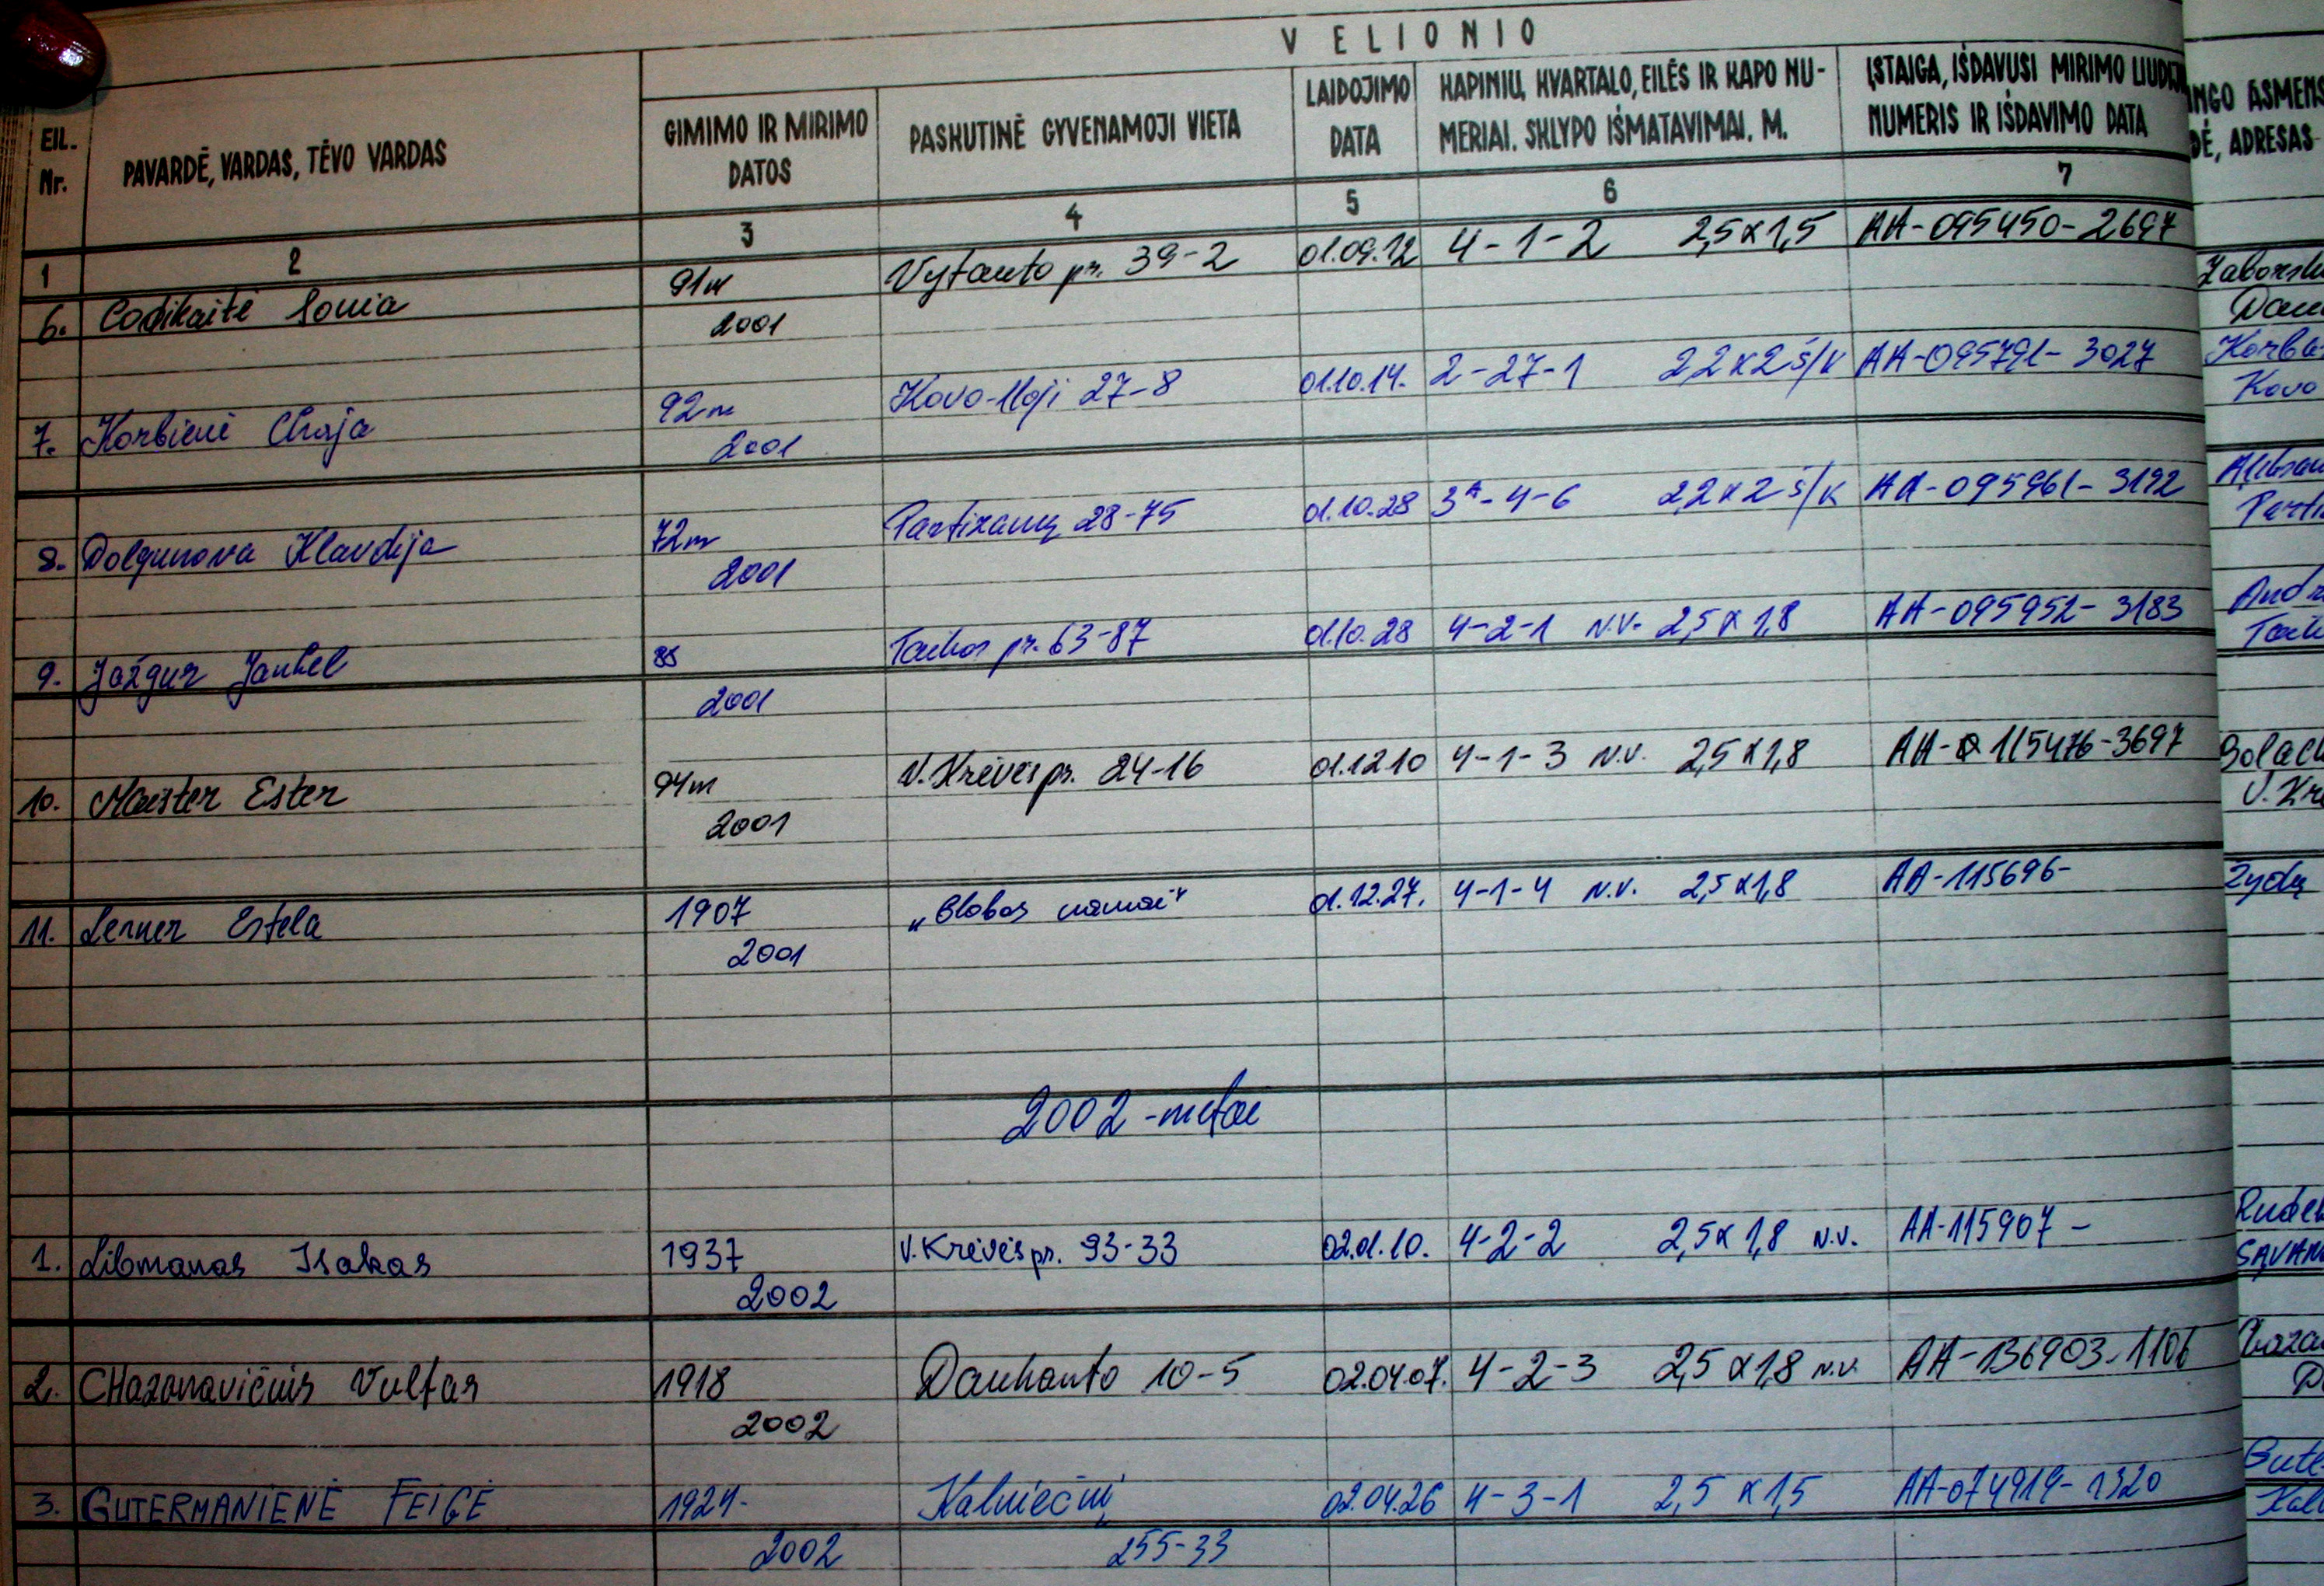 VELIONIO
EIL. Nr.
PAVARDĖ, VARDAS, TĖVO VARDAS
GIMIMO IR MIRIMO DATOS
PASKUTINĖ GYVENAMOJI VIETA
LAIDOJIMO DATA
KAPINIŲ, KVARTALO, EILĖS IR KAPO NU-
MERIAI. SKLYPO IŠMATAVIMAI. M.
ĮSTAIGA, IŠDAVUSI MIRIMO LIUDIJ
NUMERIS IR IŠDAVIMO DATA
INGO ASMENS
DĖ, ADRESAS
1 2 3 4 5 6 7
6. Codikaitė Sonia 91m Vytauto pr. 39-2 01.09.12 4-1-2 2,5x1,5 AA-095450-2697
2001
7. Korbienė Chaja 92m Kovo-11oji 27-8 01.10.14. 2-27-1 2,2x2 š/k AA-095791-3027
2001 Kovo
8. Dolgunova Klavdija 72m Partizanų 28-75 01.10.28 3A-4-6 2,2x2 š/k AA-095961-3192
2001
9. Jažgur Jankel 85 Taikos pr. 63-87 01.10.28 4-2-1 N.V. 2,5x1,8 AA-095952-3183
2001
10. Maister Ester 94m V. Krėvės pr. 24-16 01.12.10 4-1-3 N.V. 2,5x1,8 AA-115476-3697
2001 V. Kr
11. Lerner Estela 1907 „Globos namai" 01.12.27. 4-1-4 N.V. 2,5x1,8 AA-115696- Žydų
2001
2002-metai
1. Libmanas Isakas 1937 V. Krėvės pr. 93-33 02.01.10. 4-2-2 2,5x1,8 N.V. AA-115907-
2002 SAVAN
2. CHazanavičius Vulfas 1918 Daukanto 10-5 02.04.07. 4-2-3 2,5x1,8 N.V. AA-136903-1106
2002 D
3. GUTERMANIENĖ FEIGĖ 1924- Kalniečių 02.04.26 4-3-1 2,5x1,5 AA-074919-1320
2002 255-33